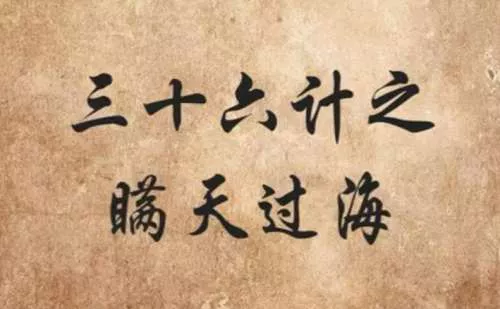 三十六计之
瞒天过海